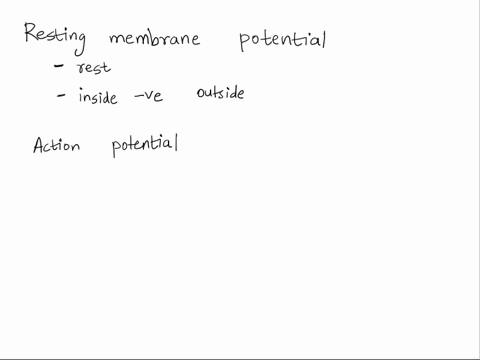 Resting membrane potential
- rest
- inside -ve outside
Action potential